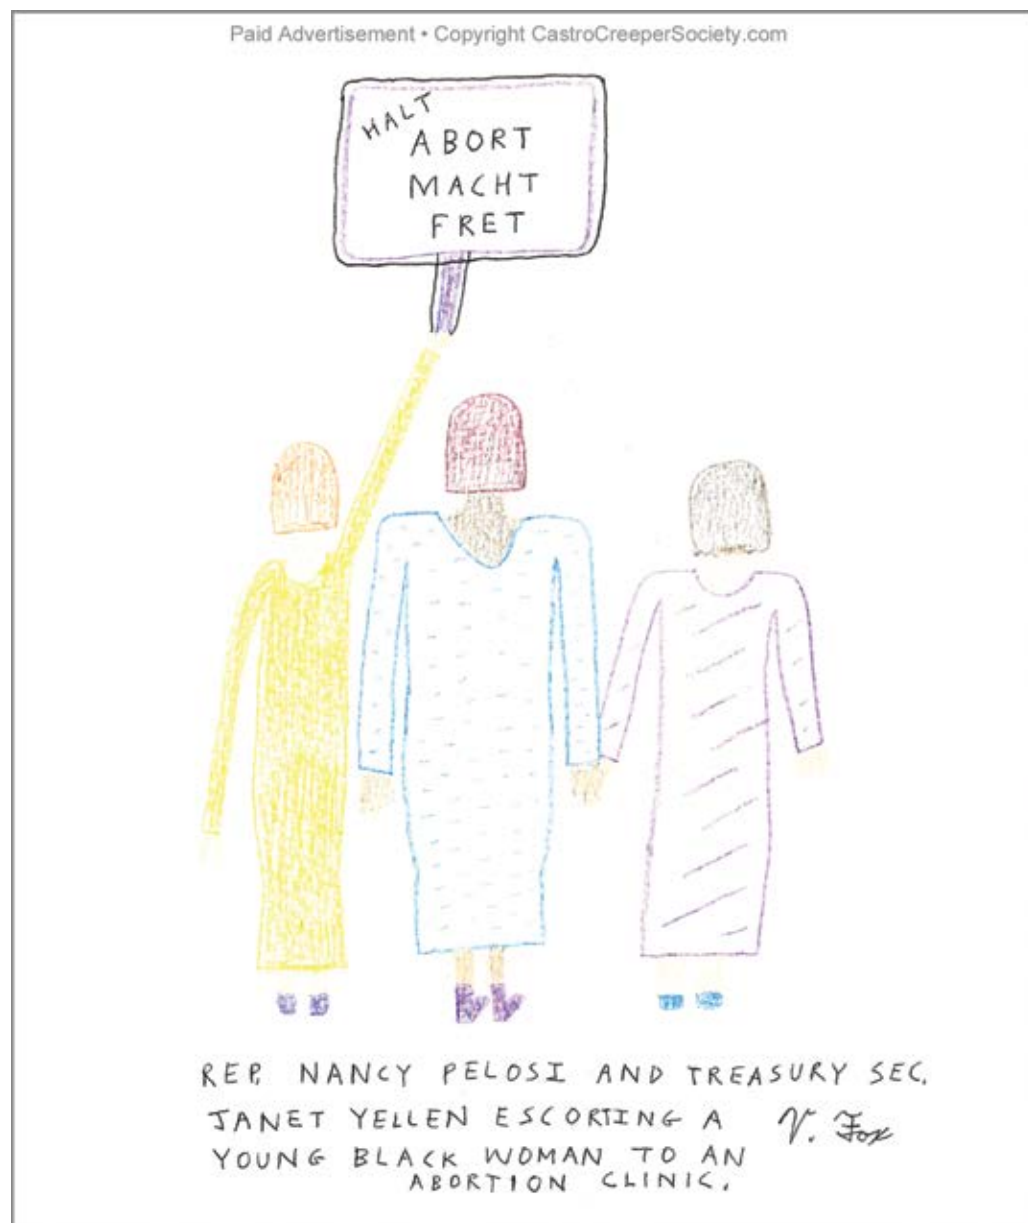 Paid Advertisement • Copyright CastroCreeperSociety.com
HALT
ABORT
MACHT
FRET
REP. NANCY PELOSI AND TREASURY SEC.
JANET YELLEN ESCORTING A V. Fox
YOUNG BLACK WOMAN TO AN
ABORTION CLINIC.